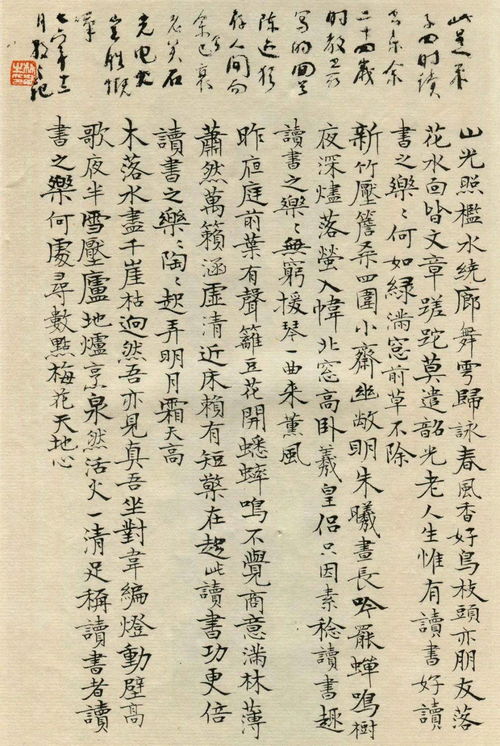 此是
子四時讀
余
二十四歲
時教
寫的回
陳迹猶
存人間而
余已衰
老矣石
火电光
豈勝慨
嘆
七六年十二
月散之記
山光照檻水繞廊舞雩歸詠春風香好鳥枝頭亦朋友落
花水面皆文章蹉跎莫遣韶光老人生惟有讀書好讀
書之樂〻何如綠滿窓前草不除
新竹壓簷桑四圍小齋幽敞明朱曦晝長吟罷蟬鳴樹
夜深燼落螢入幃北窓高卧羲皇侶只因素稔讀書趣
讀書之樂〻無窮援琴一曲来薰風
昨夜庭前葉有聲籬豆花開蟋蟀鳴不覺商意滿林薄
蕭然萬籟涵虛清近床賴有短檠在趁此讀書功更倍
讀書之樂〻陶〻起弄明月霜天高
木落水盡千崖枯迥然吾亦見真吾坐對韋編燈動壁高
歌夜半雪壓廬地爐烹泉然活火一清足稱讀書者讀
書之樂何處尋數點梅花天地心